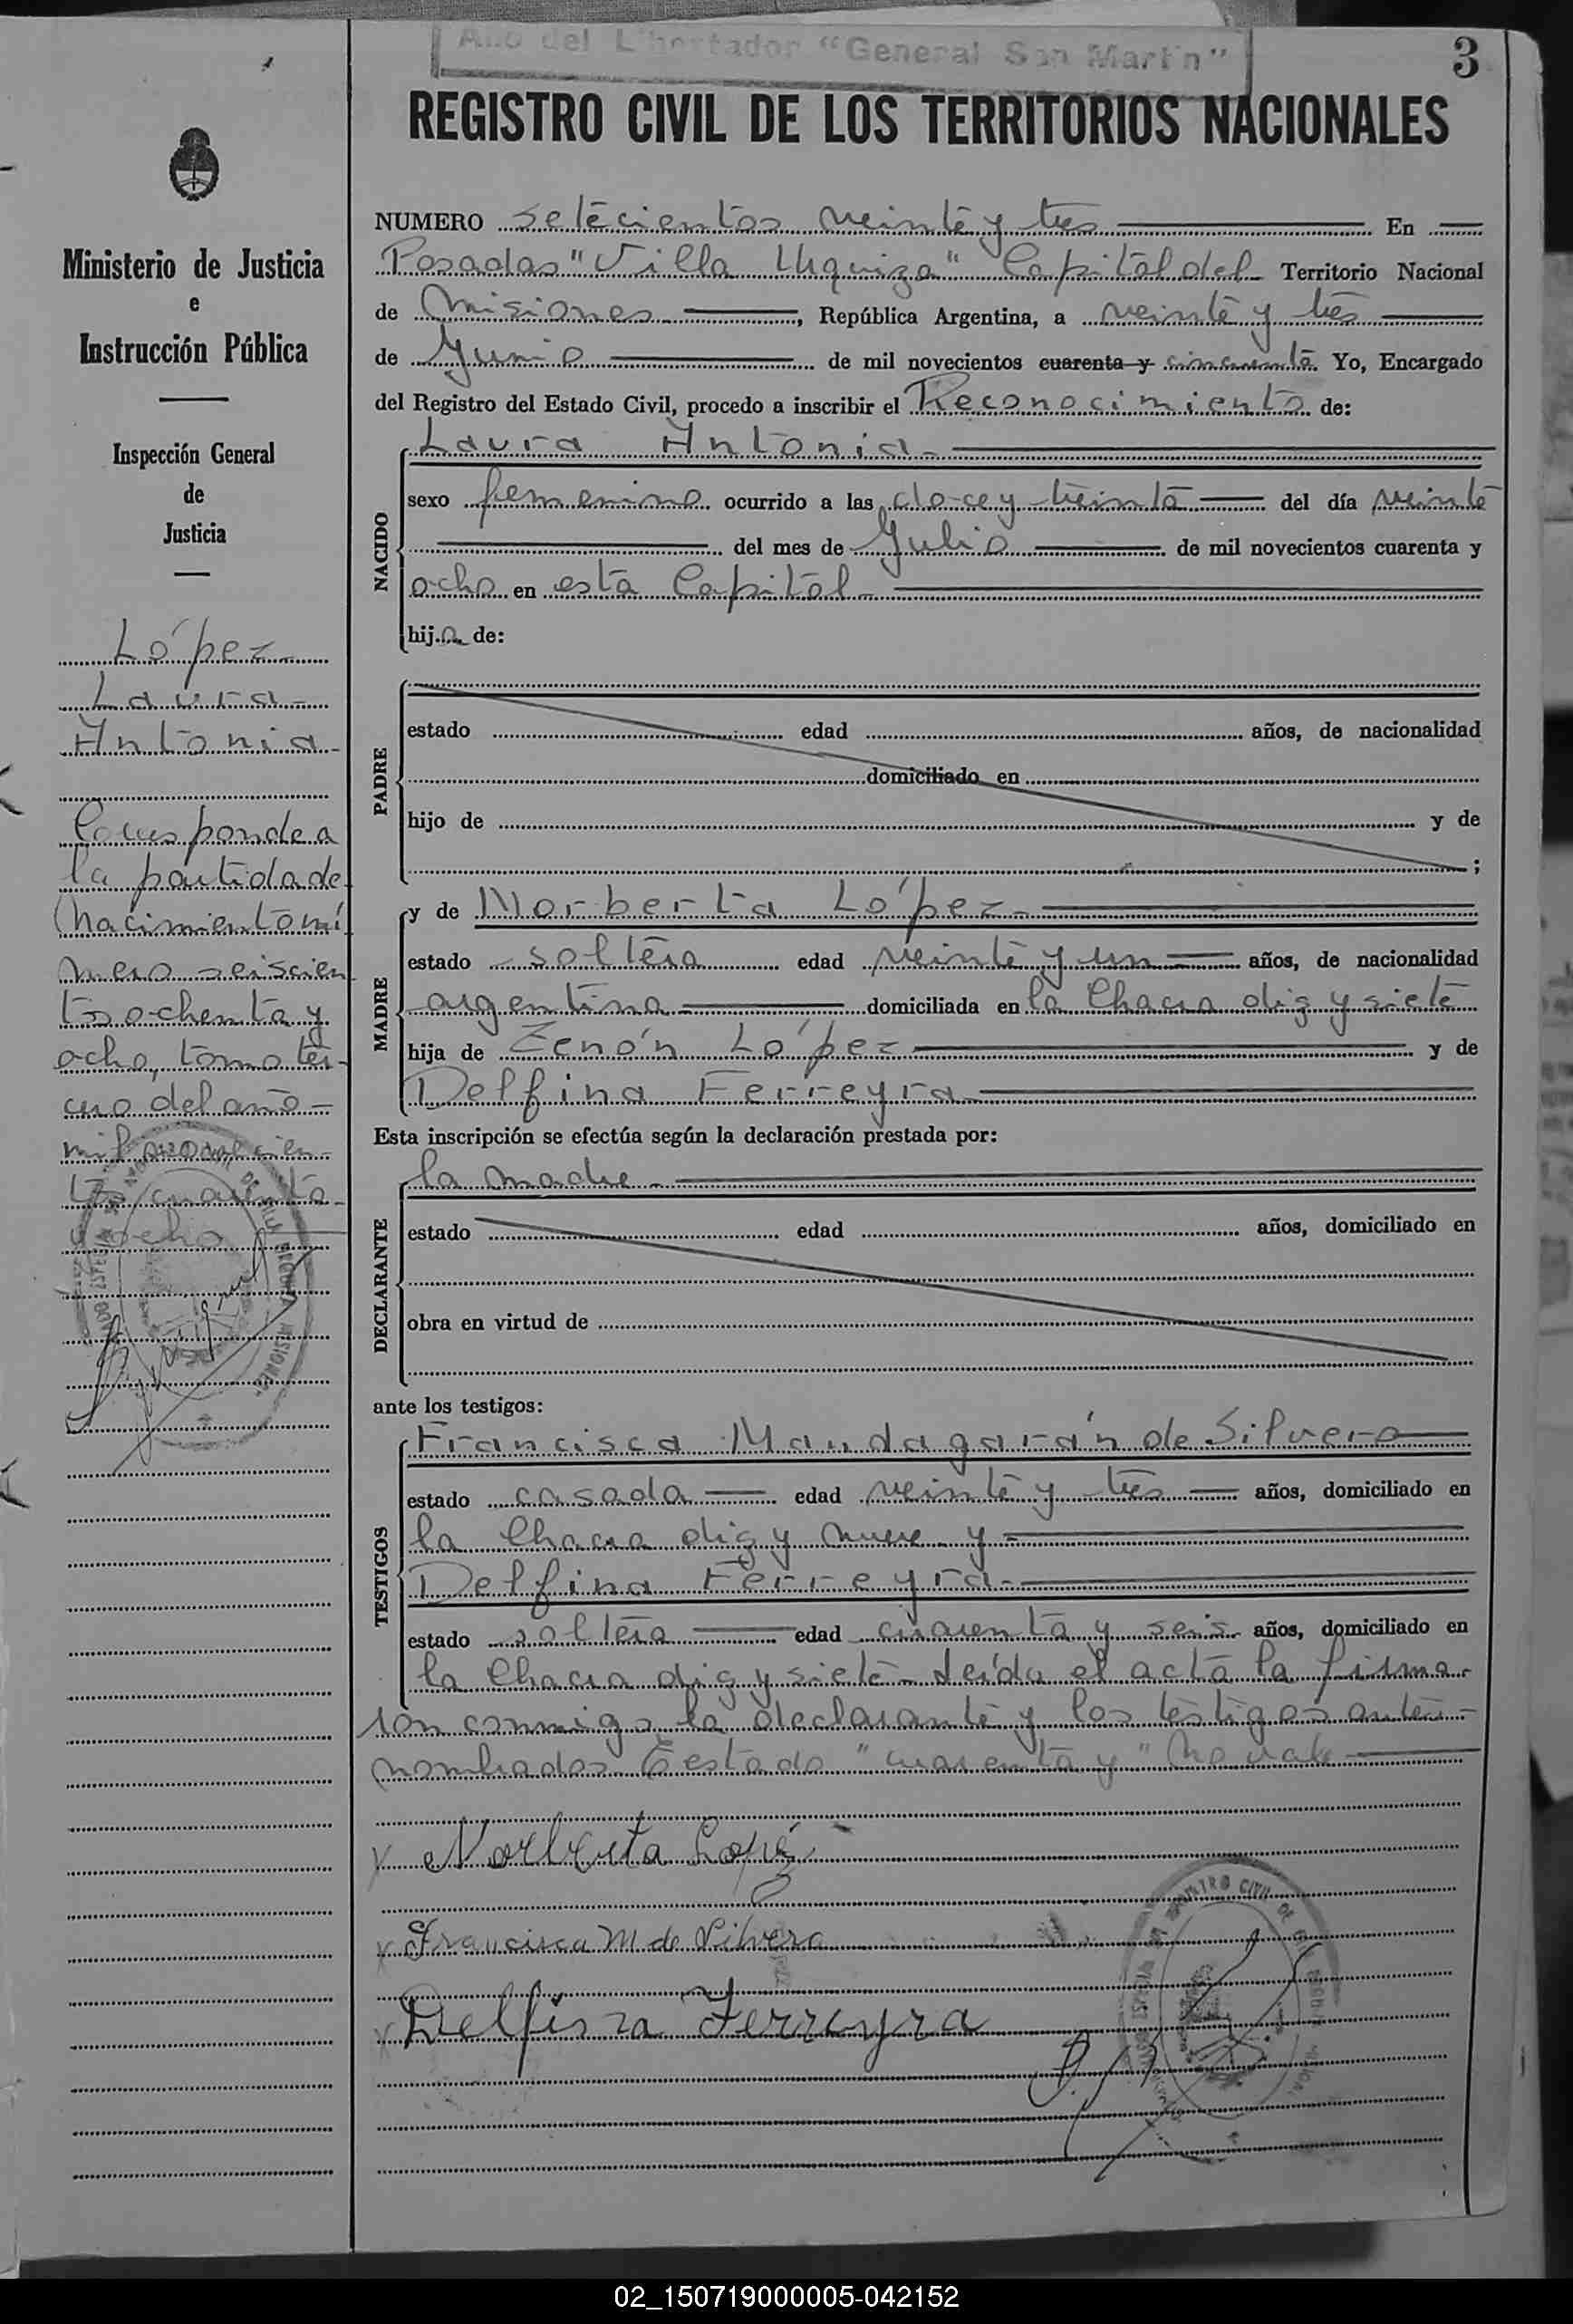 Año del Libertador "General San Martín"
3
REGISTRO CIVIL DE LOS TERRITORIOS NACIONALES
Ministerio de Justicia
e
Instrucción Pública
Inspección General
de
Justicia
López
Laura
Antonia
Corresponde a
la partida de
nacimiento nú
mero seiscien
tos ochenta y
ocho, tomo ter-
cero del año
mil novecien-
tos cuarenta
y ocho
NUMERO setecientos veinte y tres En
Posadas "Villa Urquiza" Capital del Territorio Nacional
de Misiones, República Argentina, a veinte y tres
de Junio de mil novecientos cuarenta y cincuenta Yo, Encargado
del Registro del Estado Civil, procedo a inscribir el Reconocimiento de:
Laura Antonia
NACIDO
sexo femenino ocurrido a las doce y treinta del día veinte
del mes de Julio de mil novecientos cuarenta y
ocho en esta Capital
hija de:
PADRE
estado edad años, de nacionalidad
domiciliado en
hijo de y de
;
MADRE
y de Norberta López
estado soltera edad veinte y un años, de nacionalidad
argentina domiciliada en la Chacra diez y siete
hija de Zenón López y de
Delfina Ferreyra
Esta inscripción se efectúa según la declaración prestada por:
la madre
DECLARANTE
estado edad años, domiciliado en
obra en virtud de
ante los testigos:
TESTIGOS
Francisca Mandagarán de Silvero
estado casada edad veinte y tres años, domiciliado en
la Chacra diez y nueve y
Delfina Ferreyra
estado soltera edad cuarenta y seis años, domiciliado en
la Chacra diez y siete - Leída el acta la firma
ron conmigo la declarante y los testigos ante-
nombrados Testado "cuarenta y" No vale
x Norberta Lopéz
x Francisca M de Silvero
x Delfina Ferreyra
02_150719000005-042152